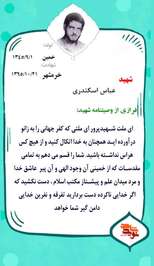 تولد:
خمین ۱۳۴۵/۹/۱
شهادت:
خرمشهر ۱۳۶۵/۱۰/۲۱
شهید
عباس اسکندری
فرازی از وصیتنامه شهید:
ای ملت شهیدپرور ای ملتی که کفر جهانی را به زانو
درآورده ایـد همچنان به خدا اتکال کنید و از هیچ کس
هراس نداشـته باشید. شما را قسم می دهم به تمامی
مقدسـات که از خمینی آن وجود الهی و آن پیر عاشق خدا
و مرد میدان علم و پیشـتاز مکتب اسلام ، دست نکشید که
اگر خدایی ناکرده دست بردارید تفرقه و نفرین خدایی
دامن گیر شما خواهد